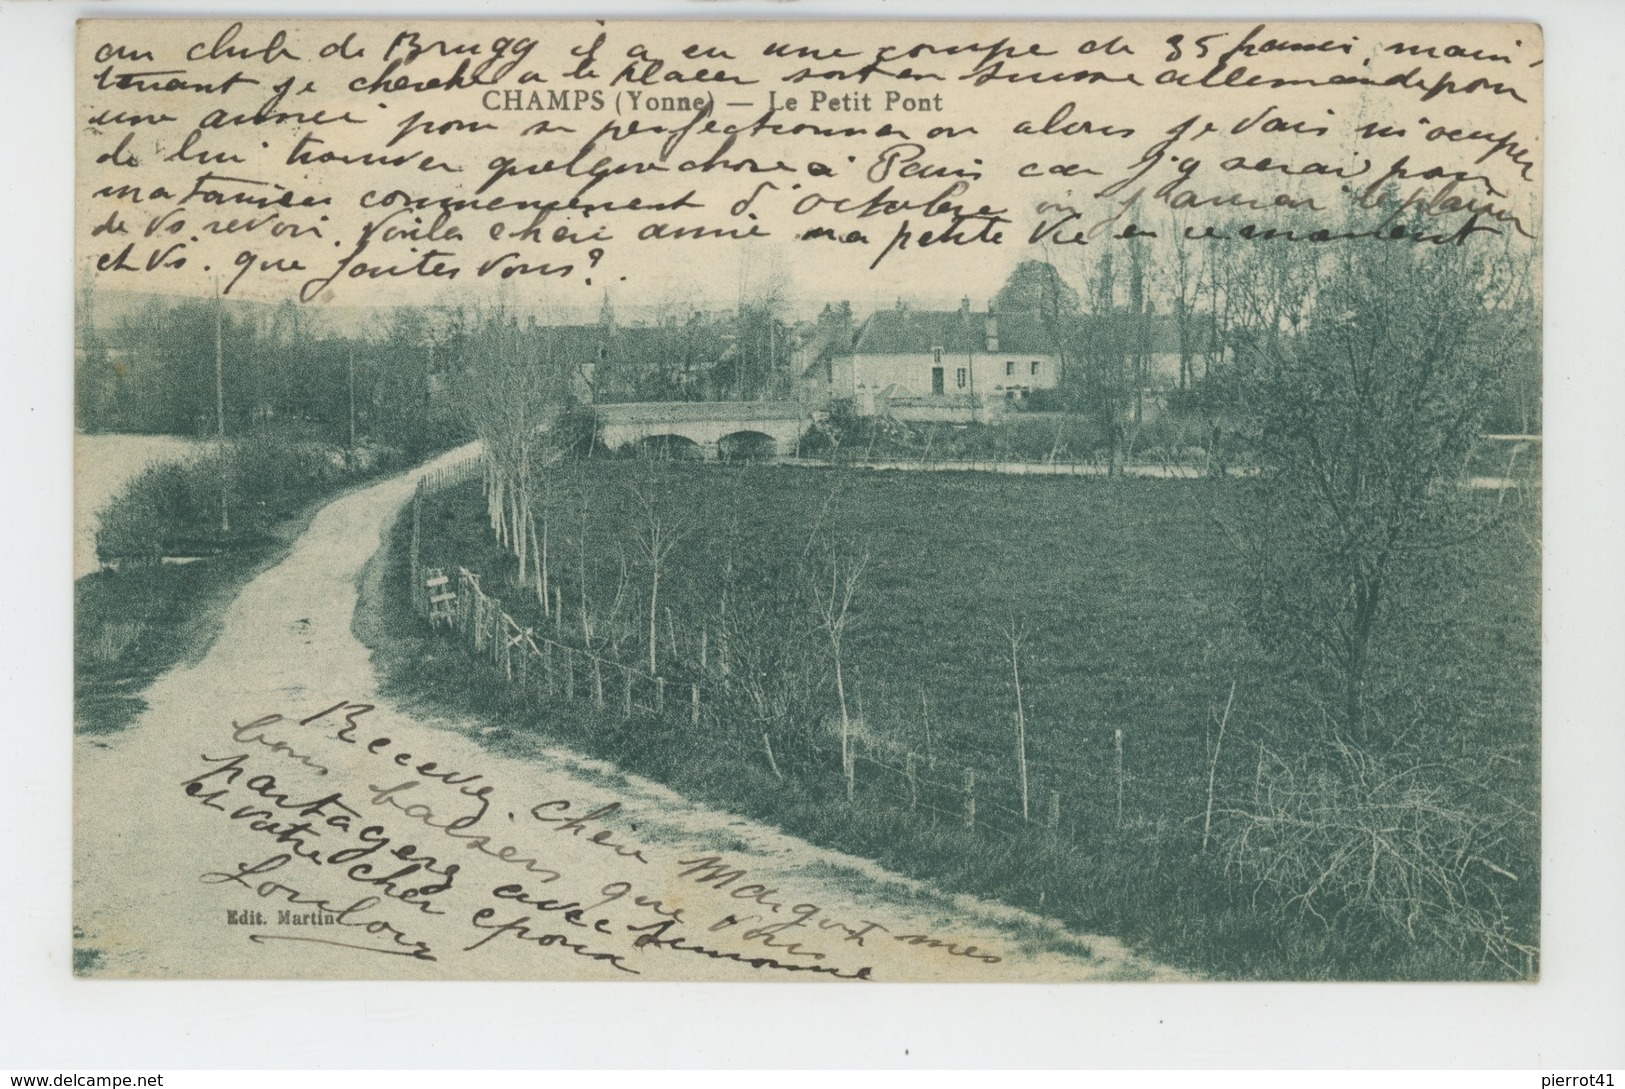 au club de Brugg il a eu une coupe de 35 francs, main
tenant je cherche a le placer soit en Suisse allemande pour
CHAMPS (Yonne) — Le Petit Pont
une année pour se perfectionner ou alors je vais m'ocuper
de lui trouver quelque chose à Paris car j'y serai pour
ma tournée commencement d'octobre où j'aurai le plaisir
de vs revoir. Voila chère amie ma petite vie en ce moment
et vs. que faites vous?
Recevez chère Margot mes
bons baisers que vous
partagere avec Simonne
et votre cher epoux
Loulou
Edit. Martin
pierrot41
delcampe.net